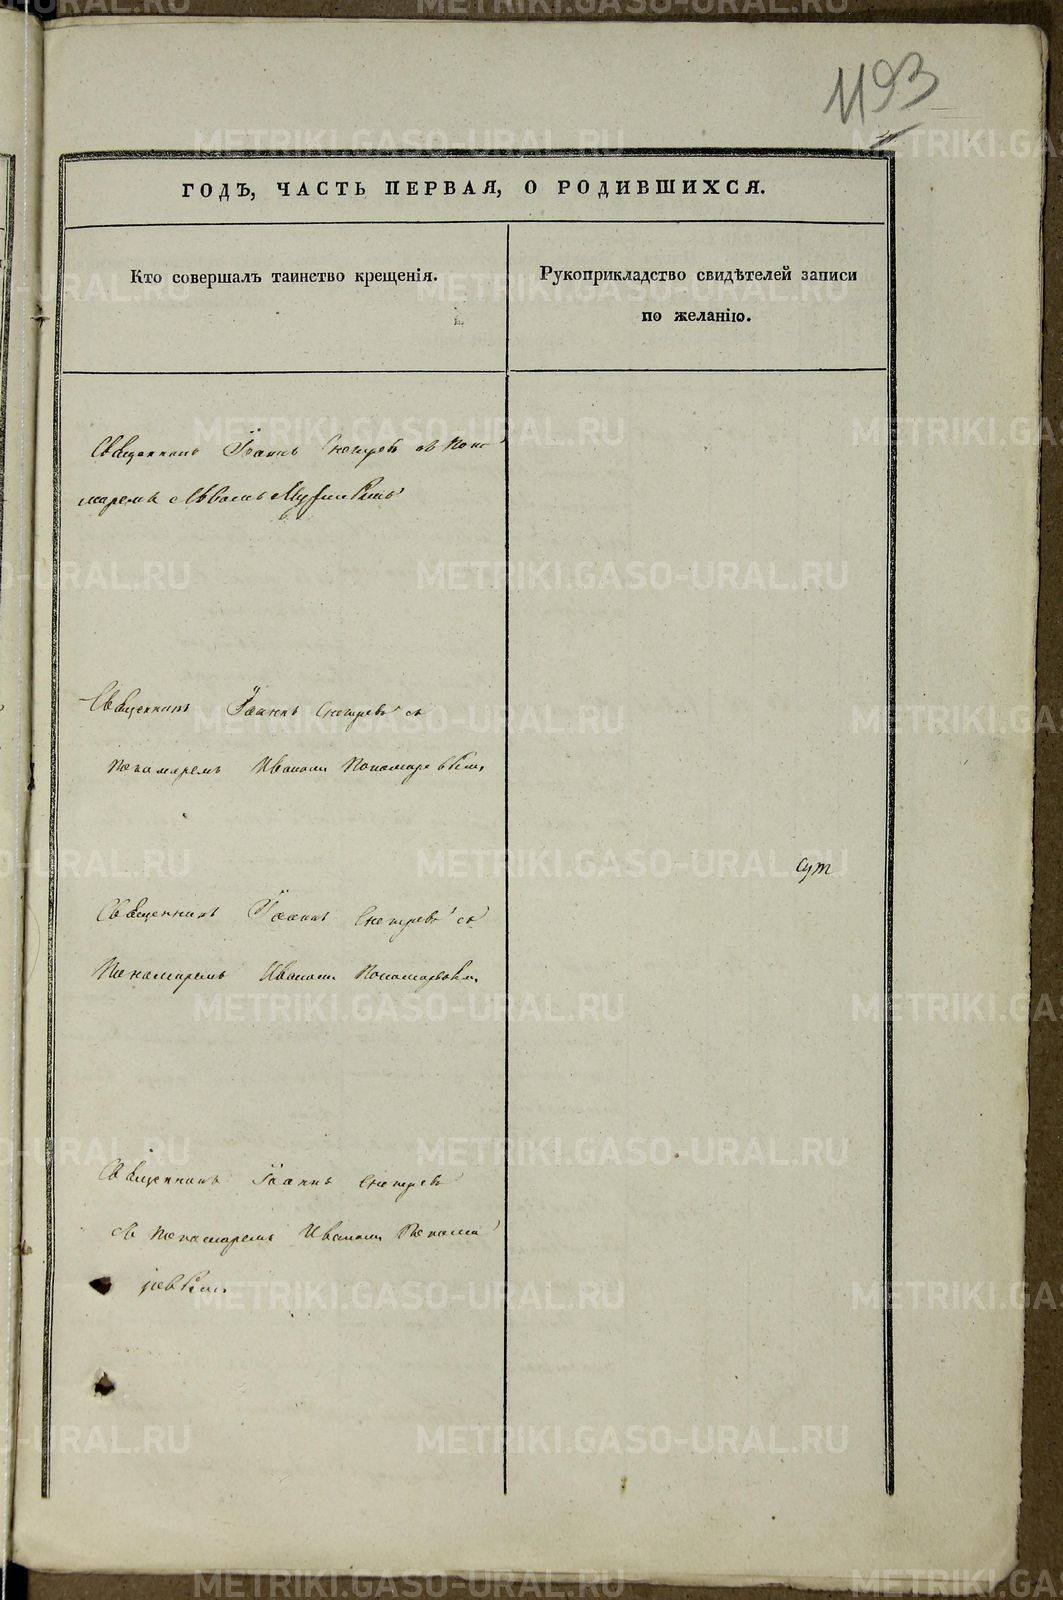 1193
ГОДЪ, ЧАСТЬ ПЕРВАЯ, О РОДИВШИХСЯ.
Кто совершалъ таинство крещенія.
Рукоприкладство свидѣтелей записи
по желанію.
Священникъ Іоаннъ съ Поно
маремъ
Священникъ Іоаннъ съ
Пономаремъ Иваномъ Пономаревымъ
Священникъ Іоаннъ съ
Пономаремъ Иваномъ Пономаревымъ
Священникъ Іоаннъ
съ Пономаремъ Иваномъ Понома
ревымъ
сут
METRIKI.GASO-URAL.RU